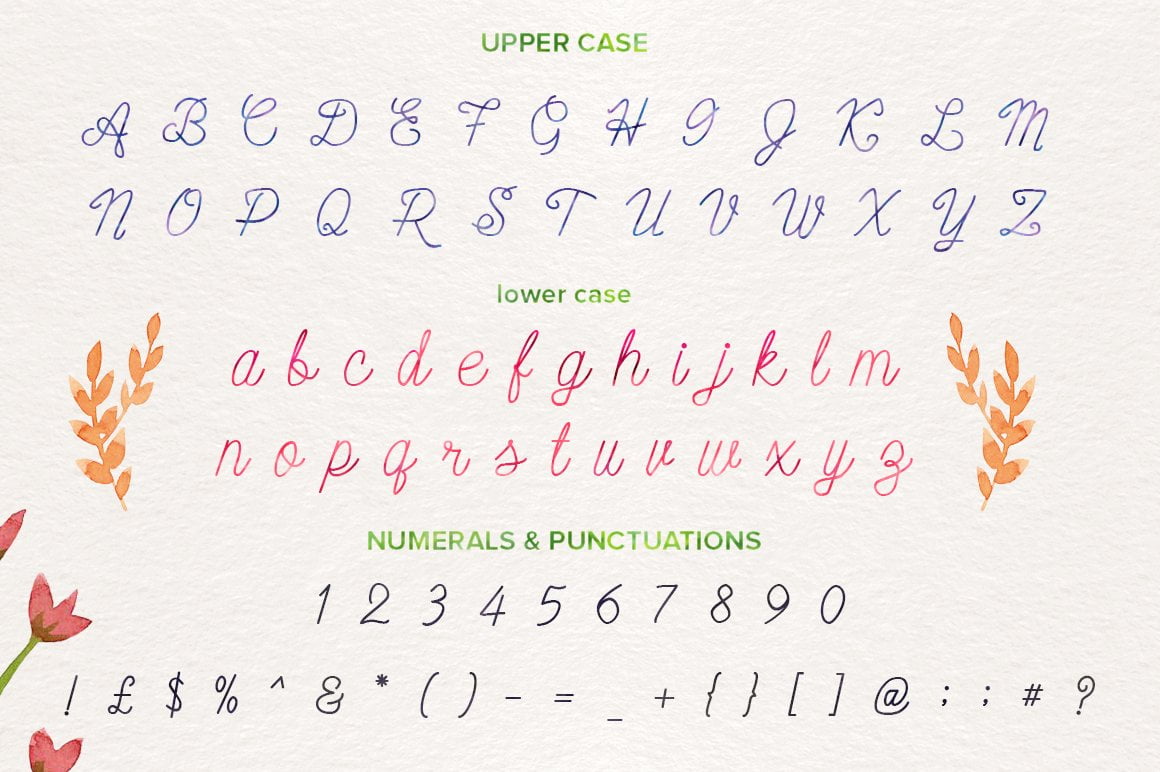 UPPER CASE
A B C D E F G H I J K L M
N O P Q R S T U V W X Y Z
lower case
a b c d e f g h i j k l m
n o p q r s t u v w x y z
NUMERALS & PUNCTUATIONS
1 2 3 4 5 6 7 8 9 0
! £ $ % ^ & * ( ) - = _ + { } [ ] @ ; ; # ?